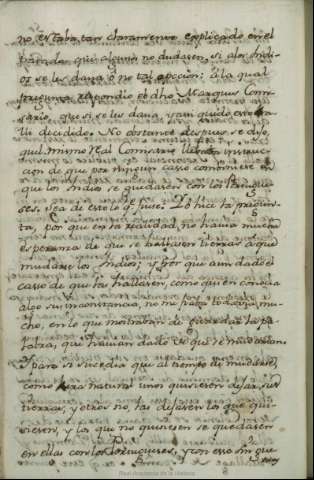 no estaba tan claramente explicado en el
tratado, que algunos no dudasen, si a los Indi-
os se les dava, ó no tal opcion: á la qual
pregunta respondio el dho Marques Comi-
sario, que si se les dava, y am quedó esto
decidido. No obstante despues se dijo,
que el mismo Real Comisario
cion de que por ningun caso consintiese en
que los Indios se quedasen con los Portugue-
ses, sea de esto lo q. fuere. Yo hice la pregun-
ta, por que en realidad, no havia mucha
esperanza de que se hallasen tierras a que
mudarse los Indios; y por que aun dado el
caso de que las hallasen, como quien conocia
algo su inconstancia, no me fiaba todavia mu-
cho, en lo que mostraban de guardar la pa-
labra, que havian dado de que se mudarian.
Y para si sucedia que al tiempo de mudarse,
como era natural unos quisiesen dejar sus
tierras, y otros no, las dejasen los que qui-
siesen, y los que no quisiesen se quedasen
en ellas con los Portugueses, y con eso sin que
Real Academia de la Historia